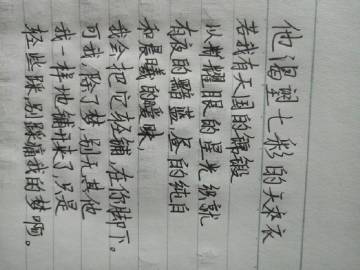 他渴望七彩的天衣
若我有天国的锦缎
以那耀眼的星光织就
有夜的黯蓝,昼的纯白
和晨曦的暧昧,
我会把它轻铺在你脚下。
可我,除了梦,别无其他
我一样地铺开来了只是
轻些踩,别踩痛我的梦啊。